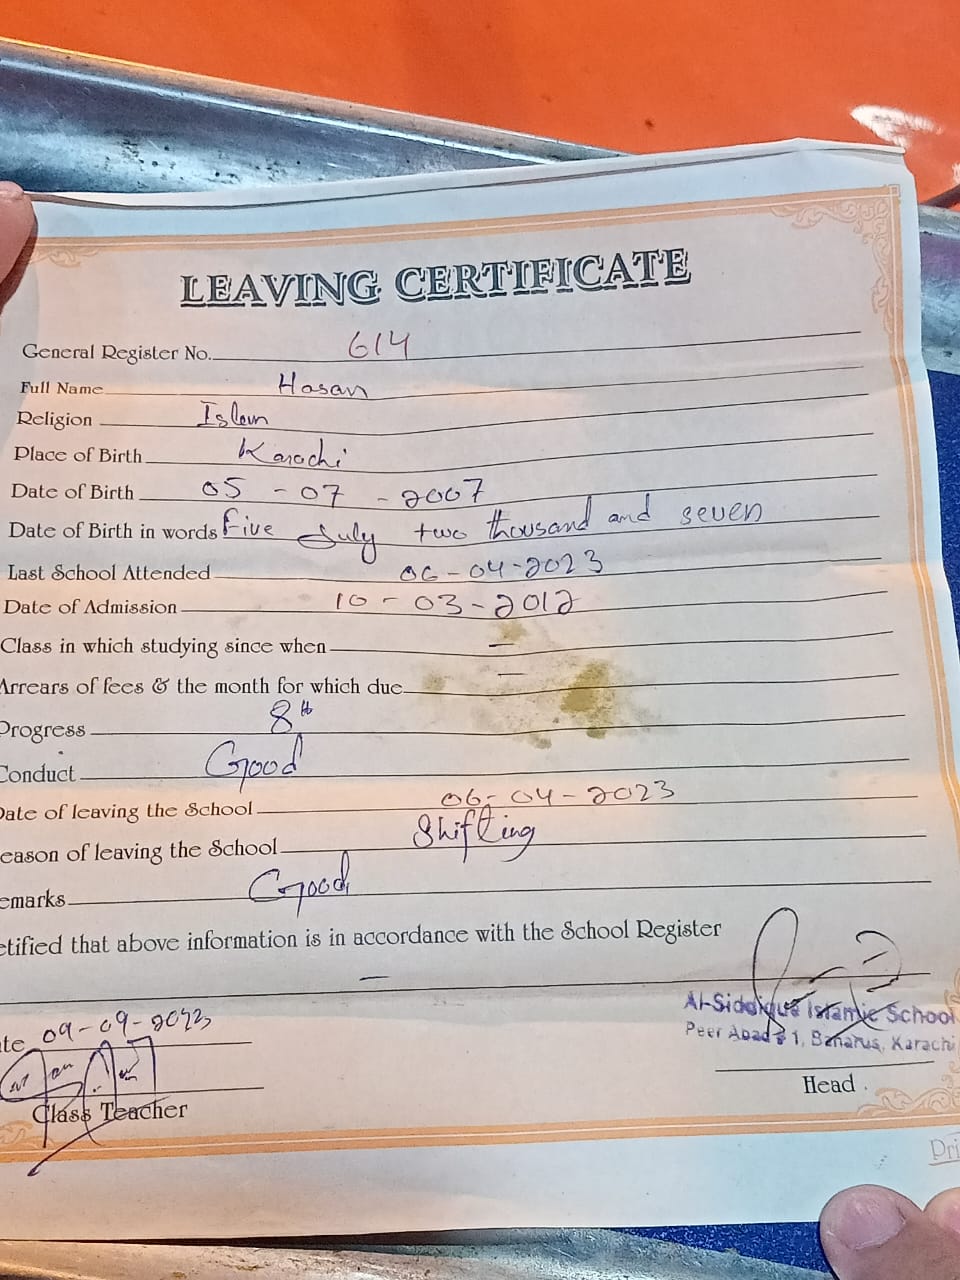 LEAVING CERTIFICATE
General Register No. 614
Full Name Hasan
Religion Islam
Place of Birth Karachi
Date of Birth 05 - 07 - 2007
Date of Birth in words Five July two thousand and seven
Last School Attended 06-04-2023
Date of Admission 10-03-2012
Class in which studying since when —
Arrears of fees & the month for which due —
Progress 8th
Conduct Good
Date of leaving the School 06-04-2023
eason of leaving the School Shifting
emarks Good
etified that above information is in accordance with the School Register
—
ate 09-09-2023
Al-Siddique Islamic School
Peer Abad # 1, Banarus, Karachi
Class Teacher
Head
Pri